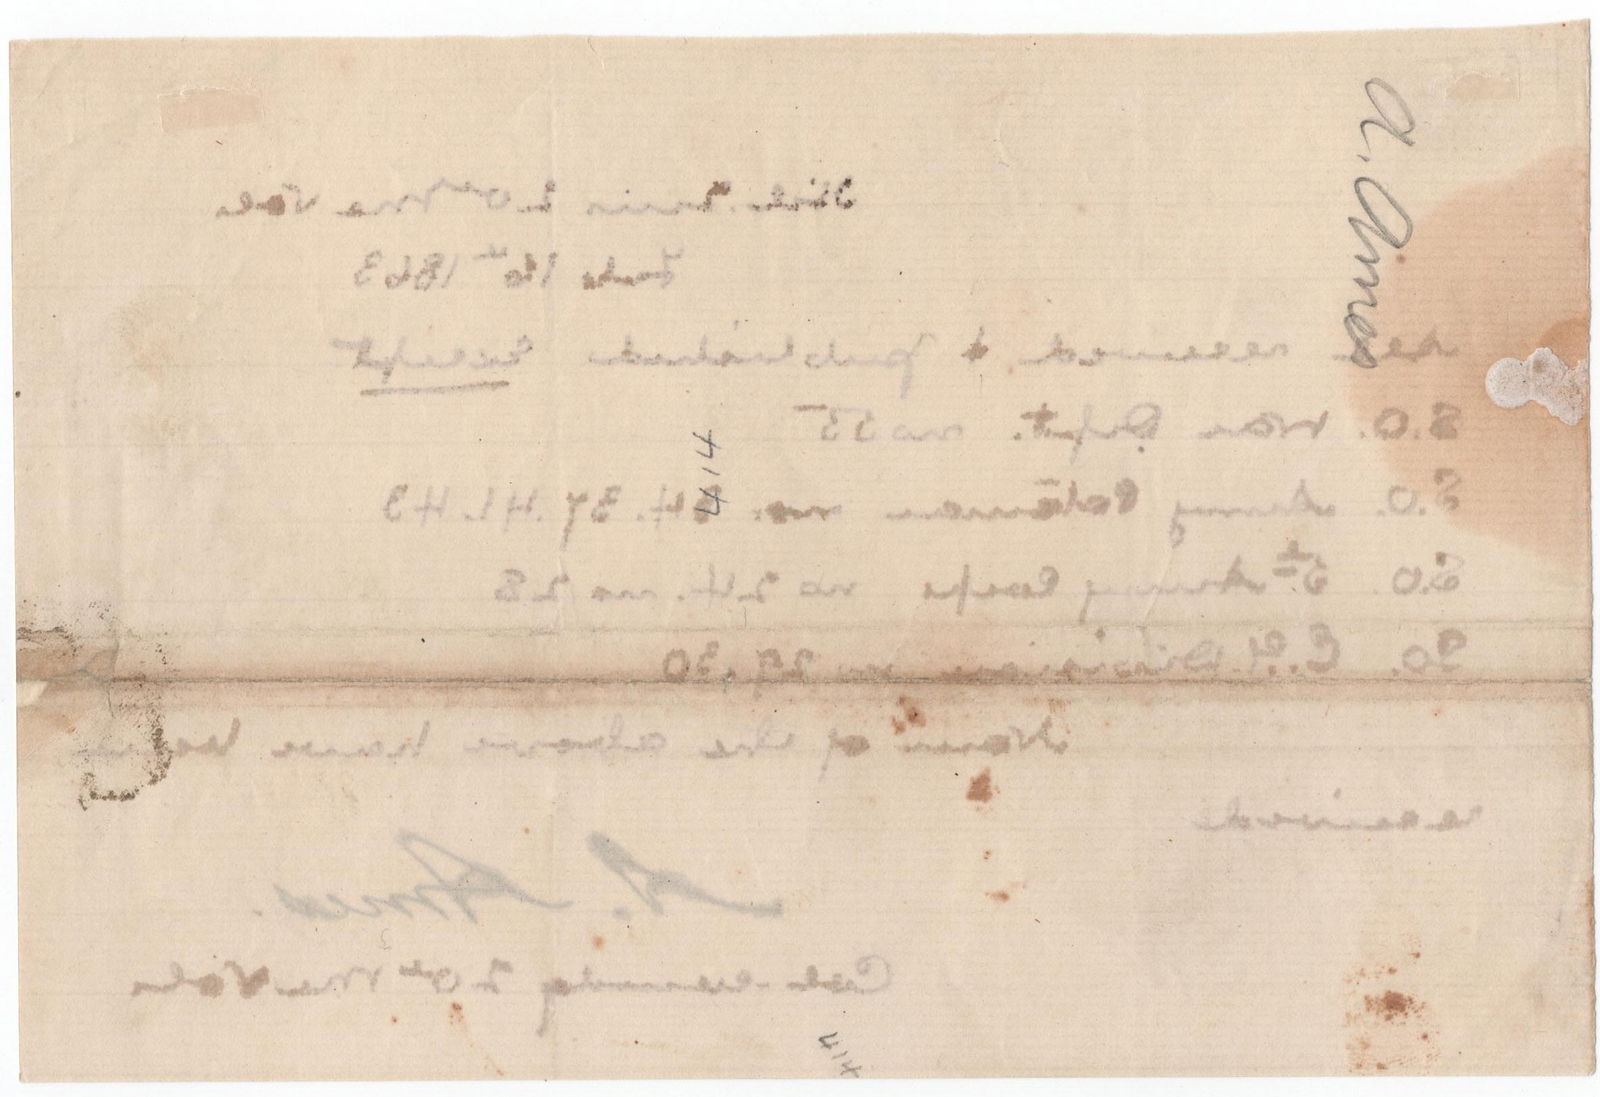 A. Ames
20th Me Vols
Feb 16th 1863
received & published Except
S.O. War Dept. no 35
S.O. Army Potomac no. 34. 37. 41. 43
S.O. 5th Army Corps no 24. no 28
S.O. no 29, 30
None of the above have been
received
A. Ames.
Col. 20th Me Vols
414
414